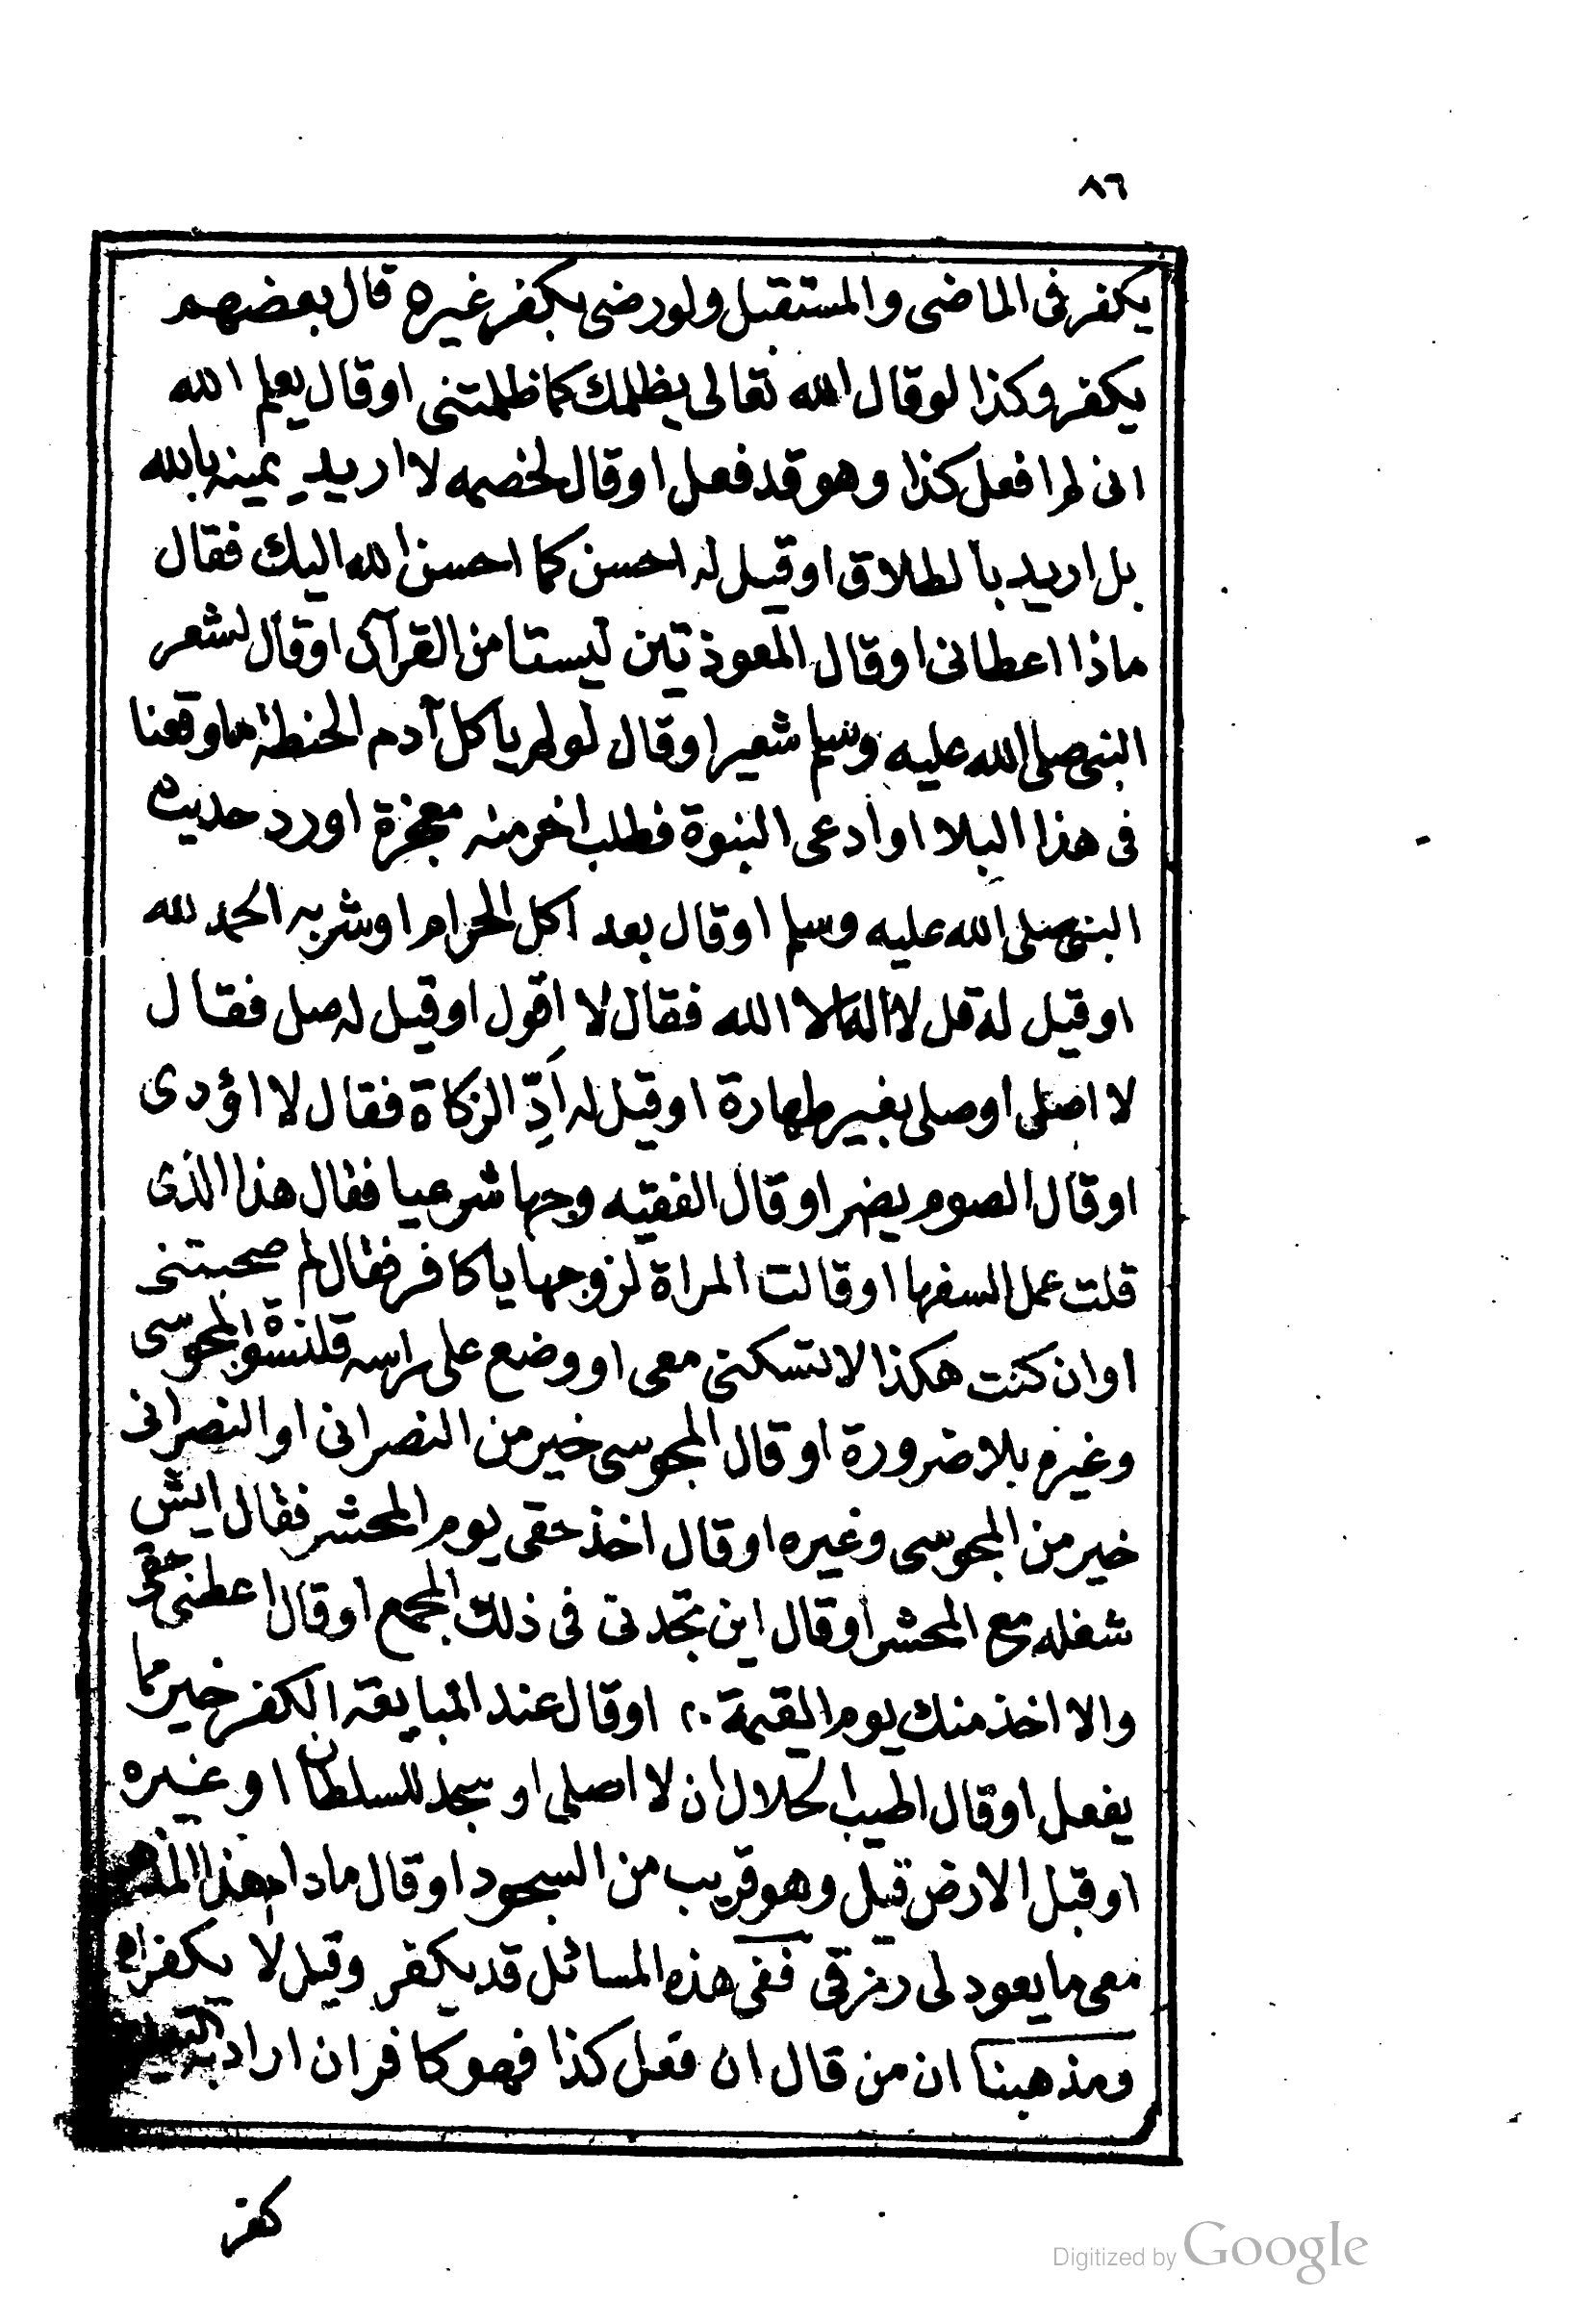 ٨٦
يكفر فى الماضى والمستقبل ولو رضى بكفر غيره قال بعضهم
يكفر وكذا لو قال الله تعالى يظلمك كما ظلمتنى او قال يعلم الله
انى لم افعل كذا وهو قد فعل او قال لخصمه لا اريد يمينه بالله
بل اريد بالطلاق او قيل له احسن كما احسن الله اليك فقال
ماذا اعطانى او قال المعوذتين ليستا من القرآن او قال لشعر
النبى صلى الله عليه وسلم شعيرا وقال لو لم ياكل آدم الحنطة ما وقعنا
فى هذا البلا او ادعى النبوة فطلب اخر منه معجزة او رد حديث
النبى صلى الله عليه وسلم او قال بعد اكل الحرام او شربه الحمد لله
او قيل له قل لا اله الا الله فقال لا اقول او قيل له صل فقال
لا اصلى او صلى بغير طهارة او قيل له ادِّ الزكاة فقال لا اؤدى
او قال الصوم يضر او قال الفقيه وجها شرعيا فقال هذا الذى
قلت عمل السفها او قالت المراة لزوجها يا كافر فقال لم صحبتنى
او ان كنت هكذا لا تسكنى معى او وضع على راسه قلنسوة المجوسى
وغيره بلا ضرورة او قال المجوسى خير من النصرانى او النصرانى
خير من المجوسى وغيره او قال اخذ حقى يوم المحشر فقال ايش
شغله مع المحشر او قال اين تجدنى فى ذلك الجمع او قال اعطنى حقى
والا اخذ منك يوم القيمة ٢٠ او قال عند المبايعة الكفر خير مما
يفعل او قال الطيب الحلال ان لا اصلى او سجد للسلطان او غيره
او قبل الارض قيل وهو قريب من السجود او قال ما دام هذا
معى ما يعود لى رزقى ففى هذه المسائل قد يكفر وقيل لا يكفر
ومذهبنا ان من قال ان فعل كذا فهو كافر ان اراد به
كفر
Digitized by Google